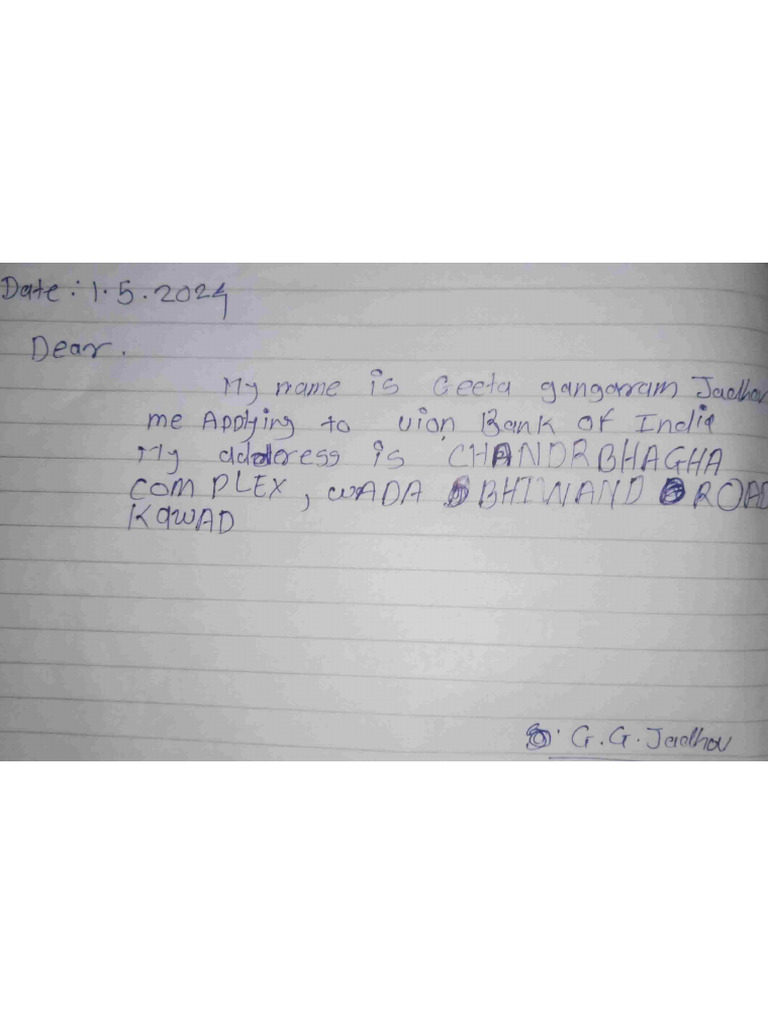 Date: 1.5.2024
Dear.
My name is Geeta gangarram Jadhav
me Applying to uion Bank of India
My address is CHANDRBHAGHA
COMPLEX, WADA BHIWAND ROAD
KAWAD
G.G.Jadhav